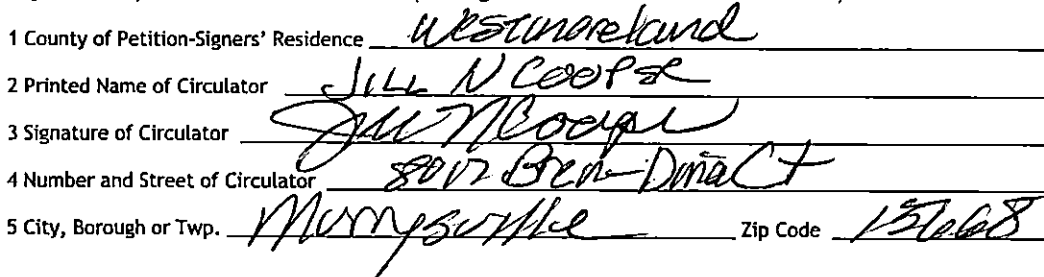 1 County of Petition-Signers' Residence Westmoreland
2 Printed Name of Circulator JILL N COOPER
3 Signature of Circulator Jill N Cooper
4 Number and Street of Circulator Ct
5 City, Borough or Twp. Murrysville Zip Code 15668